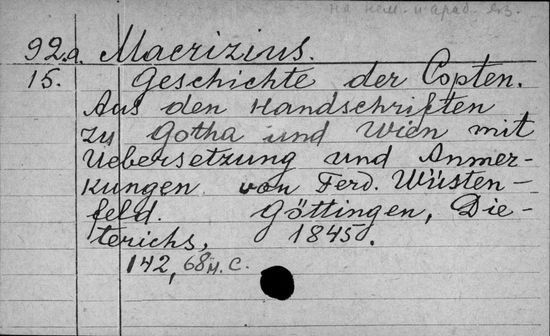 на нем. и араб. яз.
92.a. Macrizius.
15. Geschichte der Copten.
Aus den Handschriften
zu Gotha und Wien mit
Uebersetzung und Anmer-
kungen von Ferd. Wüsten-
feld. Göttingen, Die-
terichs, 1845.
142, 68 н. с.